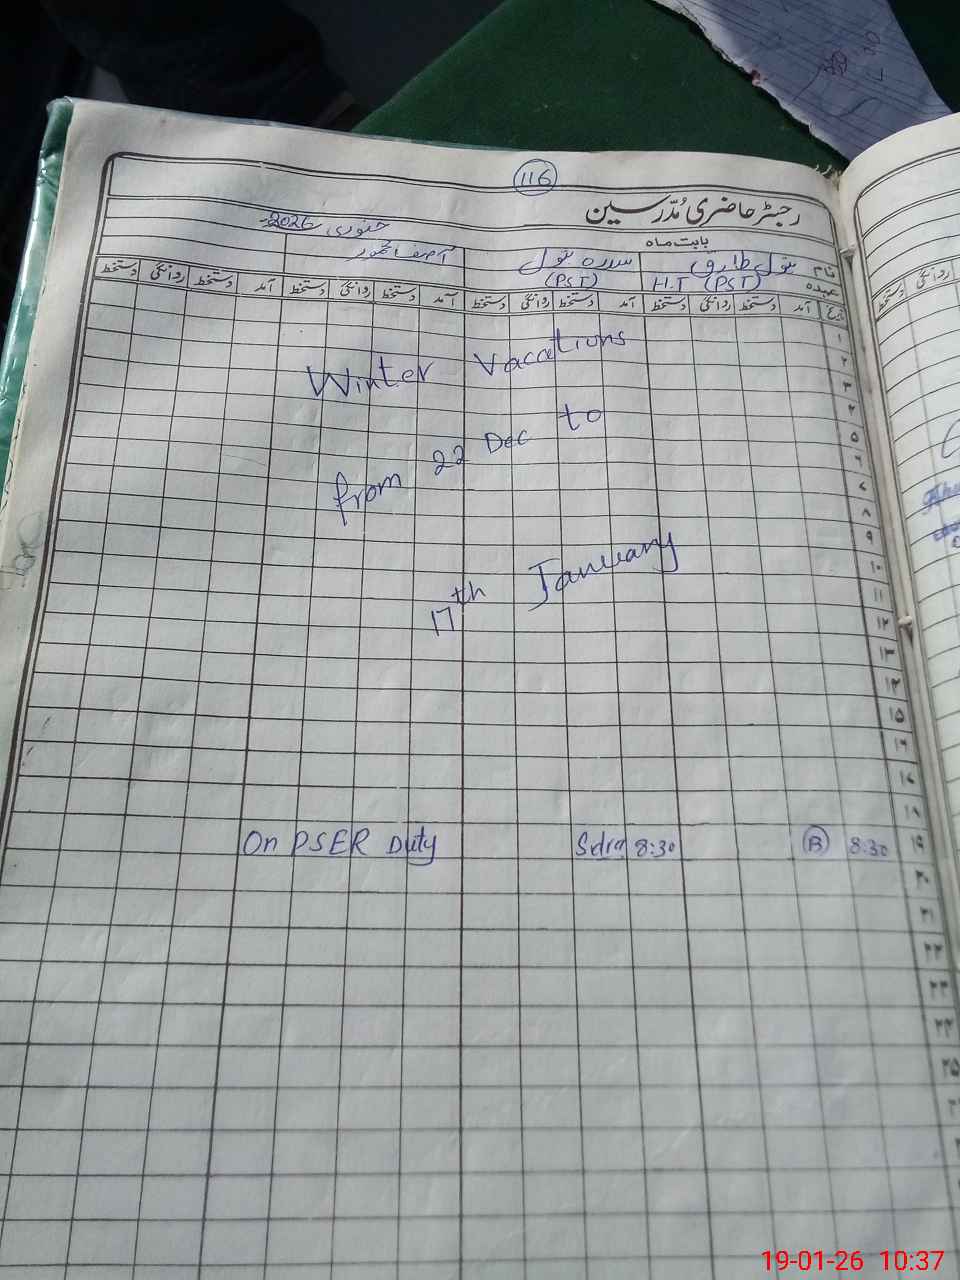 116
رجسٹر حاضری مدرسین
بابت ماہ جنوری 2026
نام بتول طارق سدرہ بتول آصف محمود
عہدہ H.T (PST) (PST)
تاریخ آمد دستخط روانگی دستخط آمد دستخط روانگی دستخط آمد دستخط روانگی دستخط آمد دستخط روانگی دستخط
۱
۲
۳
۴
۵
۶
۷
۸
۹
۱۰
۱۱
۱۲
۱۳
۱۴
۱۵
۱۶
۱۷
۱۸
Winter Vacations
from 22 Dec to
17th January
۱۹ 8:30 B 8:30 Sidra On PSER Duty
۲۰
۲۱
۲۲
۲۳
۲۴
۲۵
19-01-26 10:37